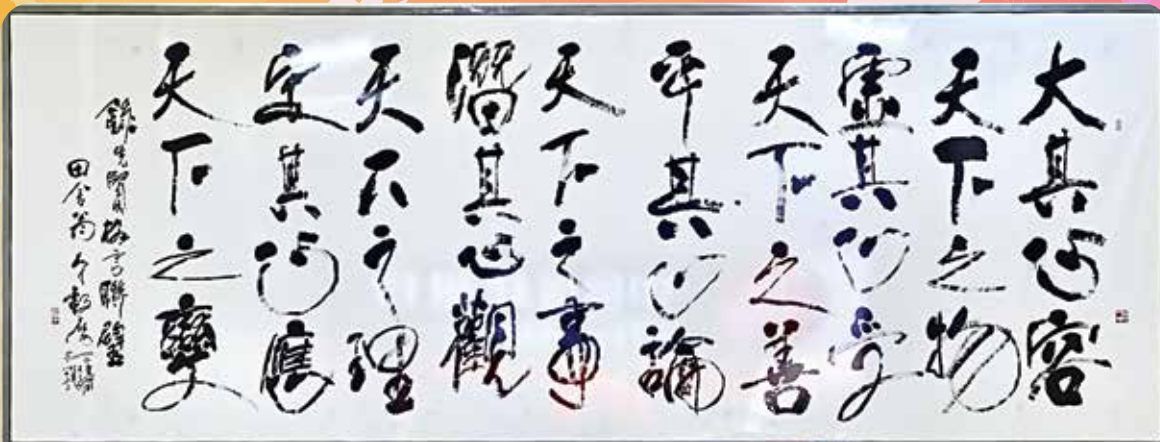 大其心容
天下之物
虛其心受
天下之善
平其心論
天下之事
潛其心觀
天下之理
定其心應
天下之變
錄先賢格言聯璧